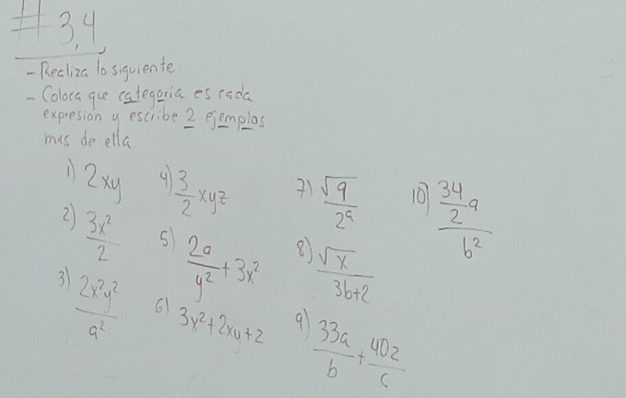 # 3,4
- Realiza lo siguiente:
- Coloca que categoria es cada
expresion y escribe 2 ejemplos
mas de ella
1) 2xy
2) 3x²/2
3) 2x²y²/a²
4) 3/2 xyz
5) 2a/y² + 3x²
6) 3x²+2xy+2
7) √9/2a
8) √x/3b+2
9) 33a/b + 40z/c
10) 34/2 a/b²